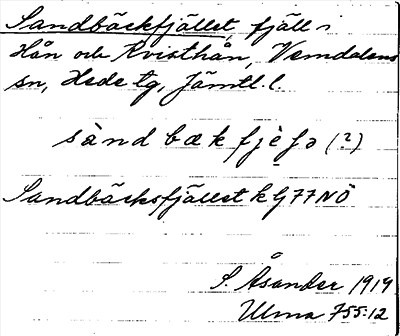 Sandbäckfjället, fjäll i
Hån och Kvisthån, Vemdalens
sn, Hede tg, Jämtl. l.
sànd bæk fjèʃə (?)
Sandbäcksfjället k G77NÖ
S. Åsander 1919
Ulma 755:12